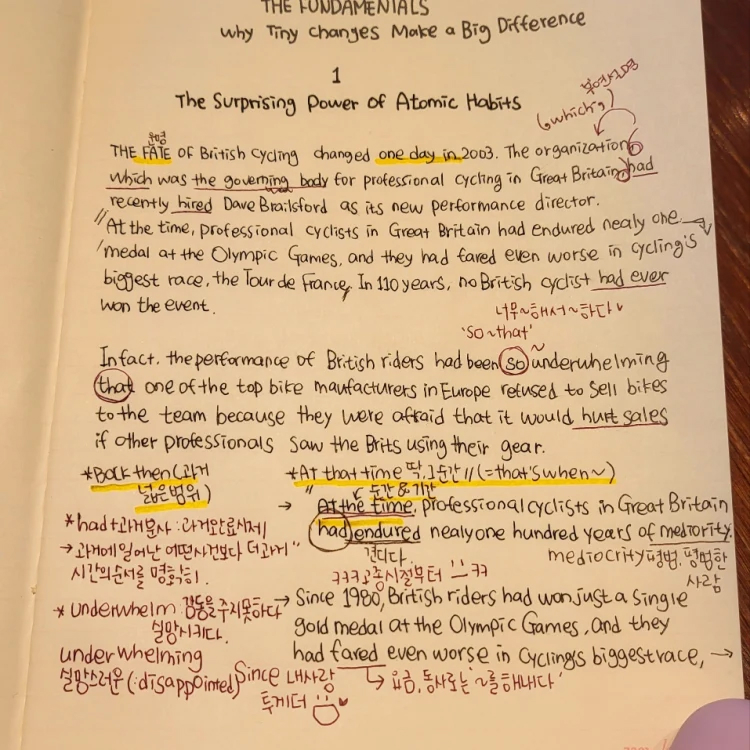 THE FUNDAMENTALS
why Tiny changes Make a Big Difference
1
The Surprising Power of Atomic Habits
부연설명
(which,)
운명
THE FATE of British Cycling changed one day in 2003. The organization,
which was the governing body for professional cycling in Great Britain, had
recently hired Dave Brailsford as its new performance director.
"At the time, professional cyclists in Great Britain had endured nealy one
medal at the Olympic Games, and they had fared even worse in cycling's
biggest race, the Tour de France, In 110 years, no British cyclist had ever
won the event.
너무~해서~하다
'so~that'
Infact, the performance of British riders had been so underwhelming
that one of the top bike maufacturers in Europe refused to sell bikes
to the team because they were afraid that it would hurt sales
if other professionals saw the Brits using their gear.
*Back then (과거
넓은범위)
*At that time 딱, 그순간 // (=that's when~)
순간&기간
→ At the time, professional cyclists in Great Britain
had endured nealy one hundred years of mediority.
견디다.
mediocrity평범, 평범한
사람
*had+과거분사 : 과거완료시제
→ 과거에 일어난 어떤사건보다 더 과거"
시간의 순서를 명확히.
ㅋㅋㅋ고종시절부터 ㅋㅋ
* underwhelm 감동을 주지못하다
실망시키다.
underwhelming
실망스러운 (:disappointed)
→ Since 1980, British riders had won just a single
gold medal at the Olympic Games, and they
had fared even worse in Cycling's biggest race, →
since 내사랑
투게더
↳ 요금, 동사로는 '~를 해내다'